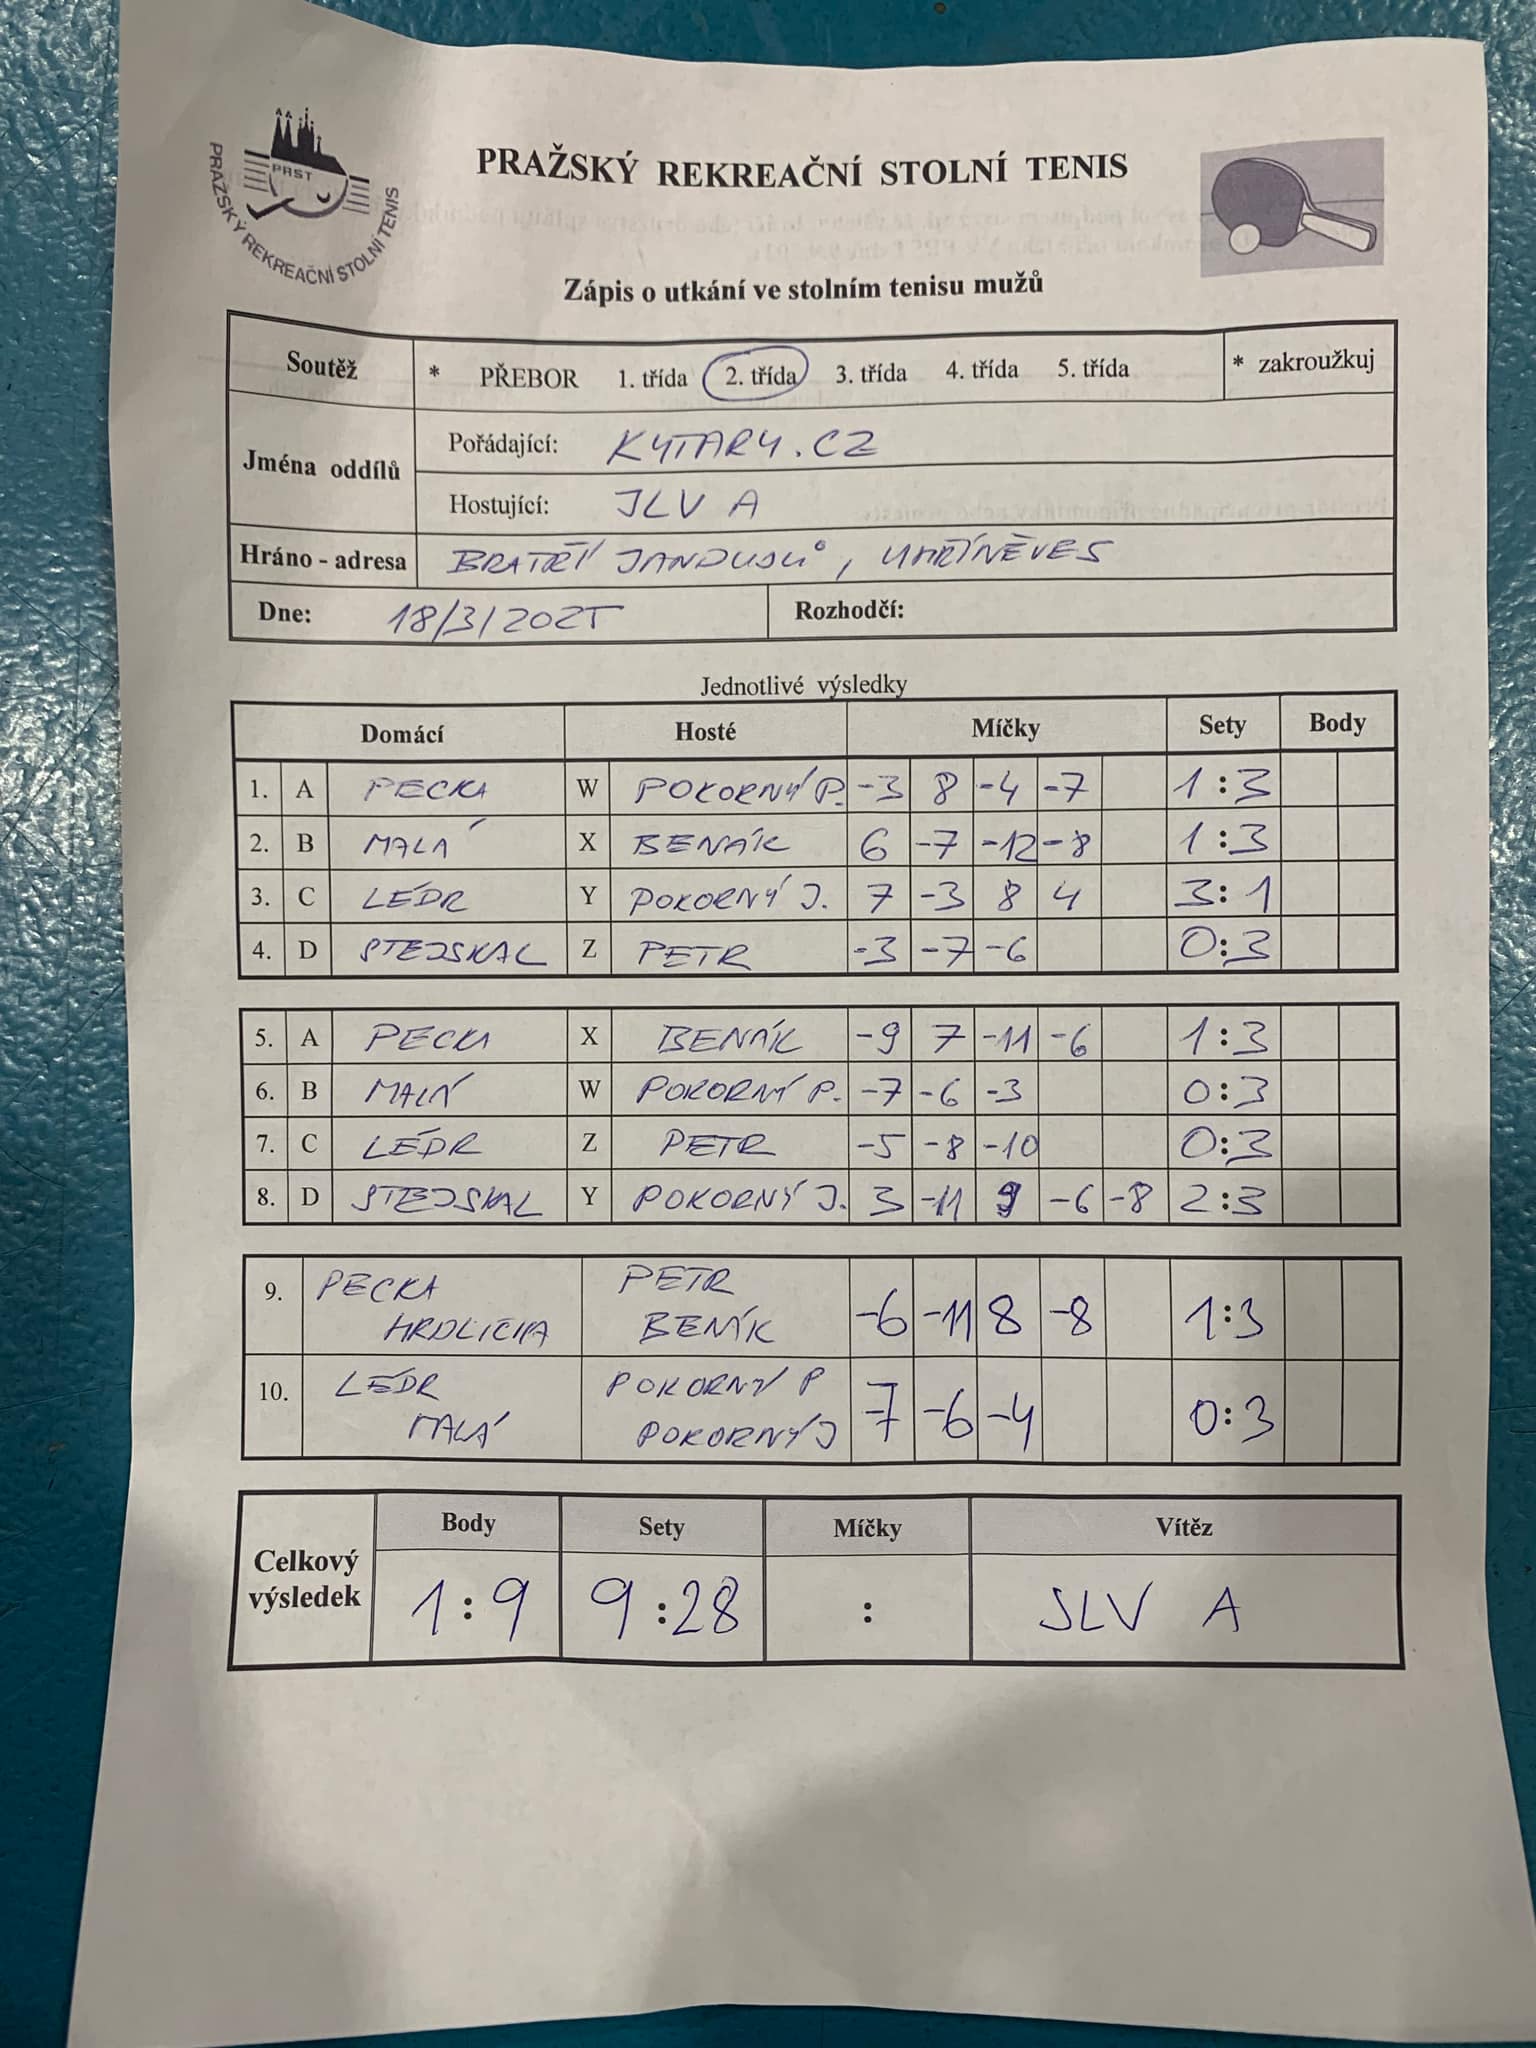 PRST
PRAŽSKÝ REKREAČNÍ STOLNÍ TENIS
PRAŽSKÝ REKREAČNÍ STOLNÍ TENIS
Zápis o utkání ve stolním tenisu mužů
Soutěž * PŘEBOR 1. třída 2. třída 3. třída 4. třída 5. třída * zakroužkuj
Jména oddílů
Pořádající: KYTARY.CZ
Hostující: JLV A
Hráno - adresa BRATŘÍ JANDUSŮ, UHŘÍNĚVES
Dne: 18/3/2025 Rozhodčí:
Jednotlivé výsledky
Domácí Hosté Míčky Sety Body
1. A PECKA W POKORNÝ P. -3 8 -4 -7 1:3
2. B MALÁ X BENÁK 6 -7 -12 -8 1:3
3. C LÉDR Y POKORNÝ J. 7 -3 8 4 3:1
4. D STEJSKAL Z PETR -3 -7 -6 0:3
5. A PECKA X BENÁK -9 7 -11 -6 1:3
6. B MALÁ W POKORNÝ P. -7 -6 -3 0:3
7. C LÉDR Z PETR -5 -8 -10 0:3
8. D STEJSKAL Y POKORNÝ J. 3 -11 9 -6 -8 2:3
9. PECKA PETR -6 -11 8 -8 1:3
HRDLICKA BENÁK
10. LÉDR POKORNÝ P -7 -6 -4 0:3
MALÁ POKORNÝ J
Celkový výsledek
Body Sety Míčky Vítěz
1:9 9:28 : JLV A